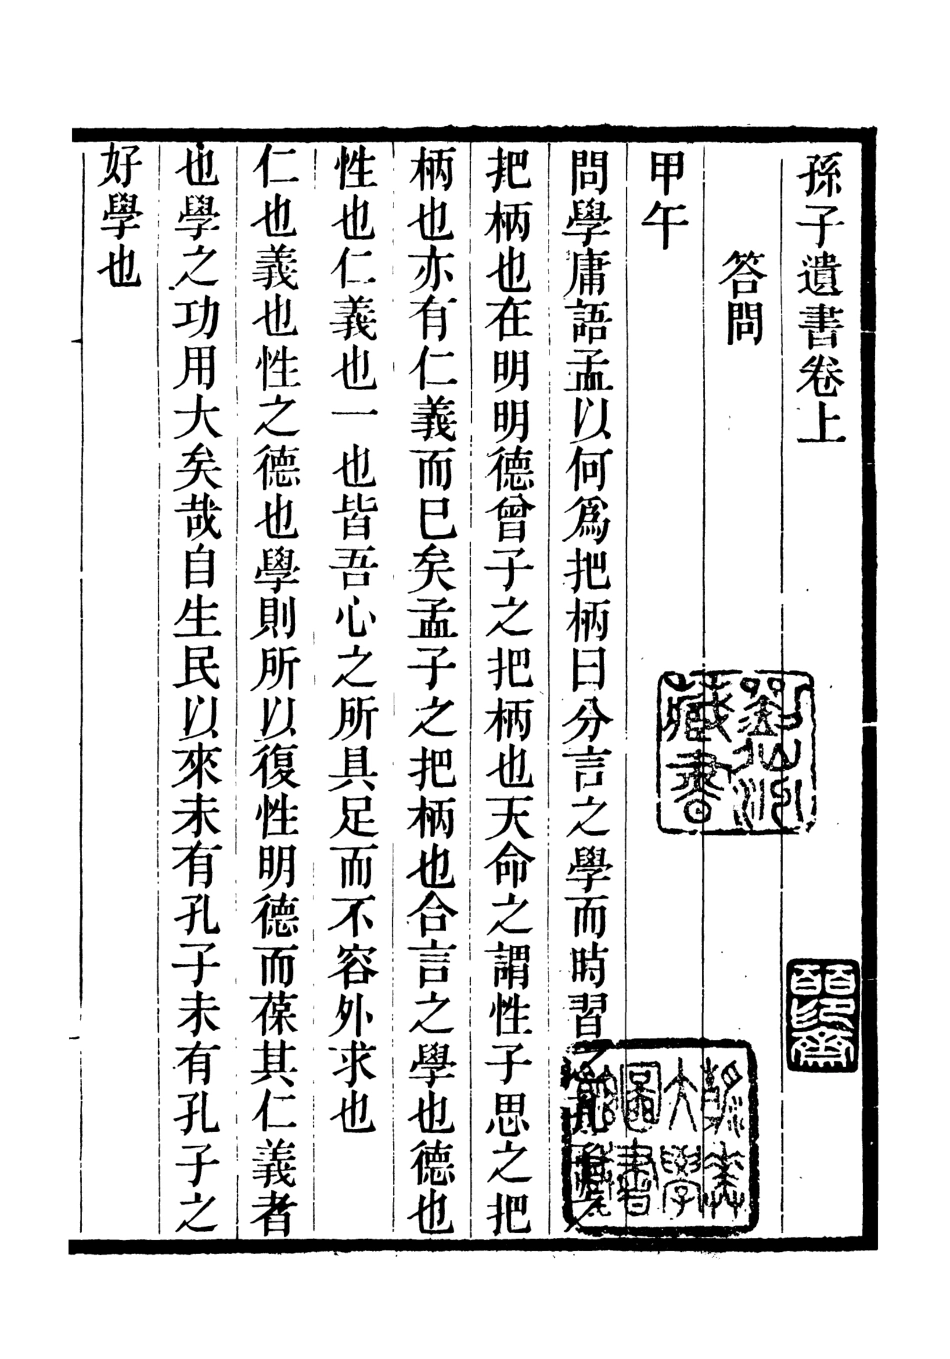 孫子遺書卷上
答問
甲午
問學庸語孟以何爲把柄曰分言之學而時習之孔子之
把柄也在明明德曾子之把柄也天命之謂性子思之把
柄也亦有仁義而巳矣孟子之把柄也合言之學也德也
性也仁義也一也皆吾心之所具足而不容外求也
仁也義也性之德也學則所以復性明德而葆其仁義者
也學之功用大矣哉自生民以來未有孔子未有孔子之
好學也
藏書
大學
圖書